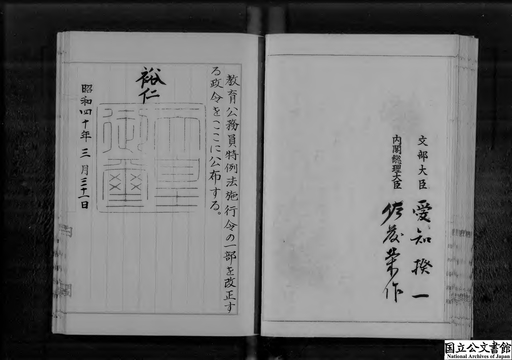 文部大臣 愛知揆一
内閣総理大臣 佐藤栄作
教育公務員特例法施行令の一部を改正す
る政令をここに公布する。
裕仁
天皇
御璽
昭和四十年三月三十一日
国立公文書館
National Archives of Japan